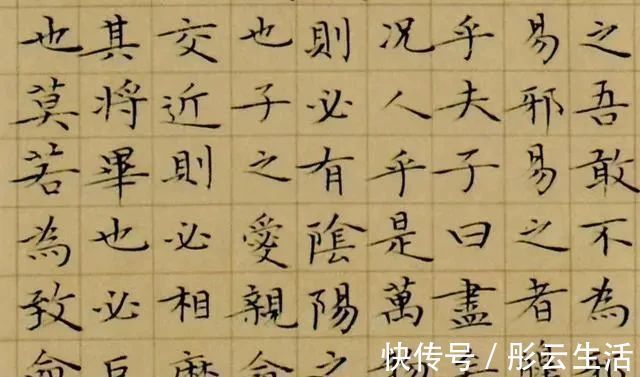 之吾敢不為
易邪易之者
乎夫子曰盡
況人乎是萬
則必有陰陽之
也子之愛親命
交近則必相
其將畢也必
也莫若為致命
快传号/彤云生活